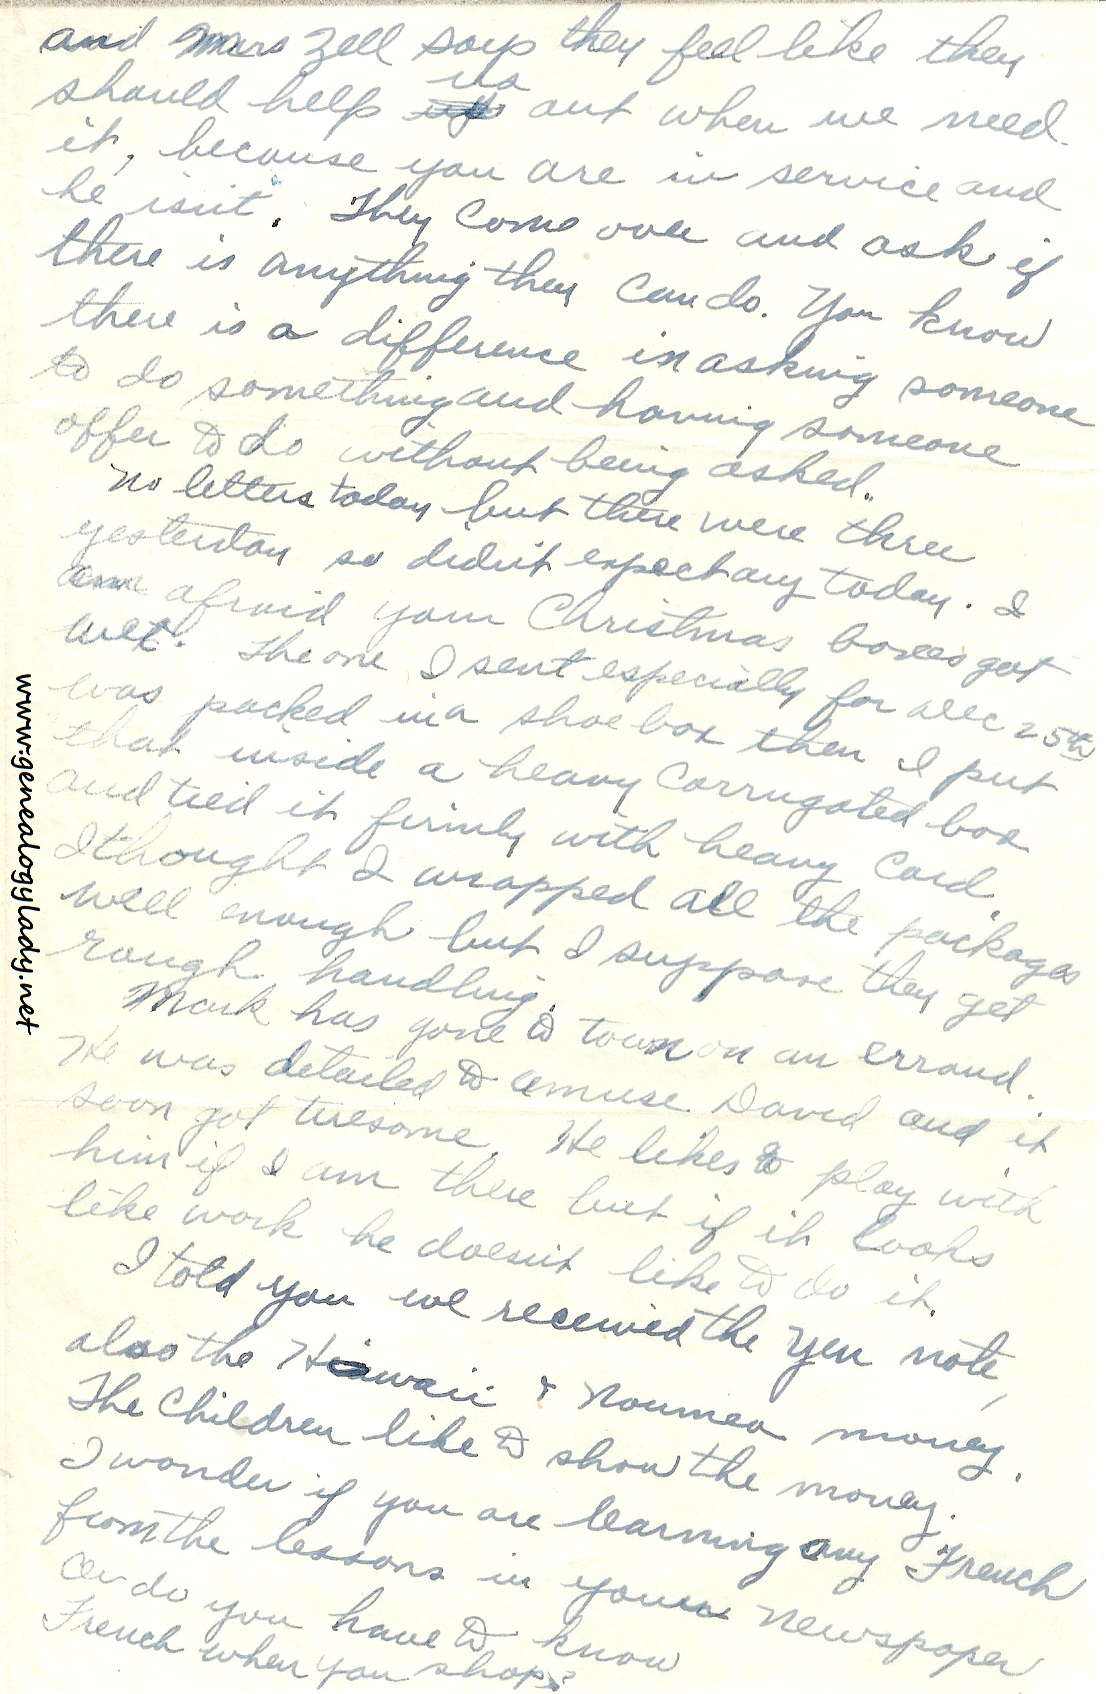 and Mars Zell says they feel like they
should help us out when we need
it, because you are in service and
he isn't. They come over and ask if
there is anything they can do. You know
there is a difference in asking someone
to do something and having someone
offer to do without being asked.
No letters today but there were three
yesterday so didn't expect any today. I
am afraid your Christmas boxes got
wet. The one I sent especially for Dec 25th
was packed in a shoe box then I put
that inside a heavy corrugated box
and tied it firmly with heavy cord.
I thought I wrapped all the packages
well enough but I suppose they get
rough handling.
Mark has gone to town on an errand.
He was detailed to amuse David and it
soon got tiresome. He likes to play with
him if I am there but if it looks
like work he doesn't like to do it.
I told you we received the yen note,
also the Hawaii & Noumea money.
The children like to show the money.
I wonder if you are learning any French
from the lessons in your newspaper
Or do you have to know
French when you shop?
www.genealogylady.net